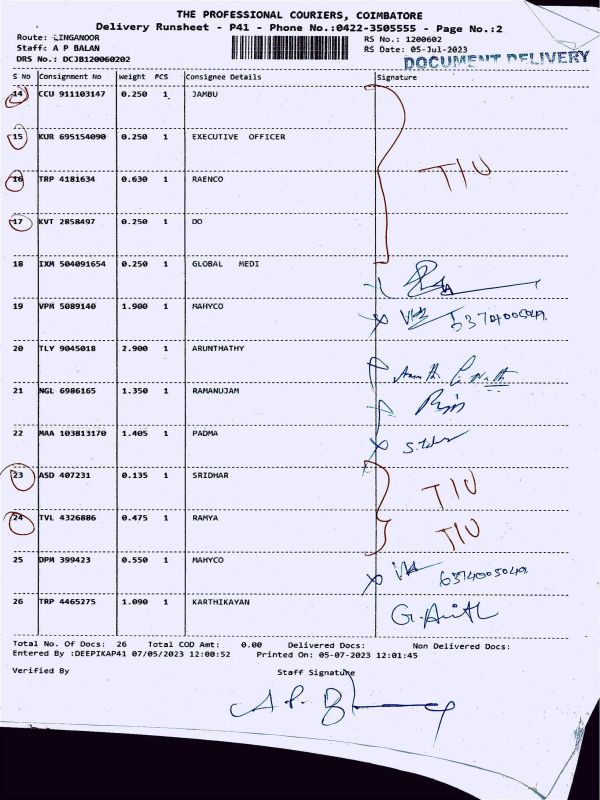 THE PROFESSIONAL COURIERS, COIMBATORE
Delivery Runsheet - P41 - Phone No.:0422-3505555 - Page No.:2
Route: LINGANOOR RS No.: 1200602
Staff: A P BALAN RS Date: 05-Jul-2023
DRS No.: DCJB120060202 DOCUMENT DELIVERY
S No Consignment No Weight PCS Consignee Details Signature
14 CCU 911103147 0.250 1 JAMBU
15 KUR 695154090 0.250 1 EXECUTIVE OFFICER
16 TRP 4181634 0.630 1 RAENCO TIU
17 KVT 2858497 0.250 1 DO
18 IXM 504091654 0.250 1 GLOBAL MEDI
19 VPM 5089140 1.900 1 MAHYCO
20 TLY 9045018 2.900 1 ARUNTHATHY
21 NGL 6986165 1.350 1 RAMANUJAM
22 MAA 103813170 1.405 1 PADMA
23 ASD 407231 0.135 1 SRIDHAR TIU
24 TVL 4326886 0.475 1 RAMYA TIU
25 DPM 399423 0.550 1 MAHYCO 6374005049
26 TRP 4465275 1.090 1 KARTHIKAYAN
Total No. Of Docs: 26 Total COD Amt: 0.00 Delivered Docs: Non Delivered Docs:
Entered By :DEEPIKAP41 07/05/2023 12:00:52 Printed On: 05-07-2023 12:01:45
Verified By Staff Signature